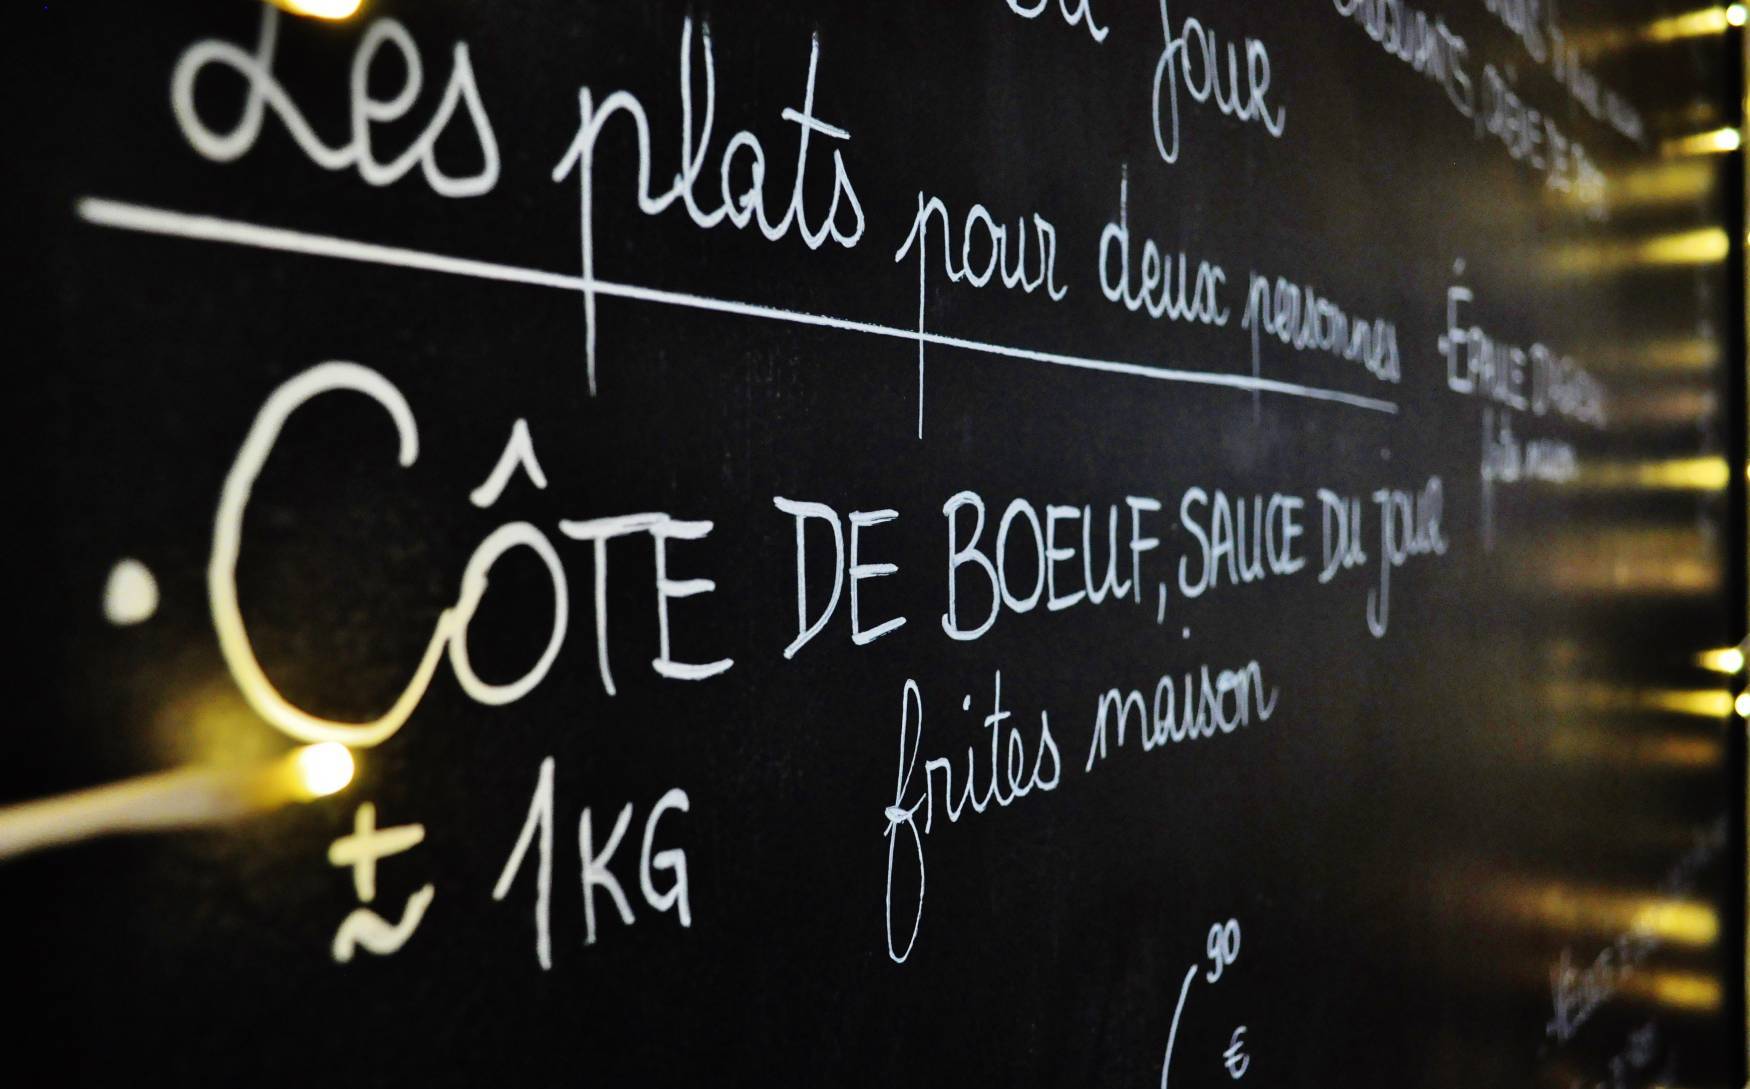 du jour
Les plats pour deux personnes
CÔTE DE BOEUF, SAUCE DU JOUR
frites maison
± 1KG
ÉPAULE D'AGNEAU
frites maison
90
€